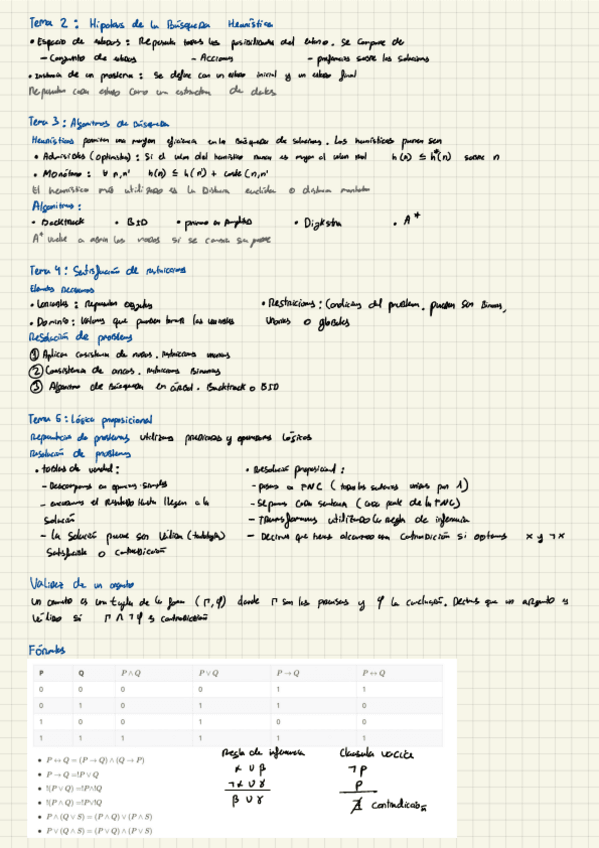 Tema 2: Hipótesis de la Búsqueda Heurística
• Espacio de estados: Representa todas las posibilidades del entorno. Se compone de
– Conjunto de estados – Acciones – preferencias sobre las soluciones
• Instancia de un problema: Se define con un estado inicial y un estado final
Representar cada estado como una estructura de datos
Tema 3: Algoritmos de Búsqueda
Heurísticas permiten una mayor eficiencia en la Búsqueda de soluciones. Las heurísticas pueden ser
• Admisibles (optimistas): Si el valor del heurístico nunca es mayor al valor real h(n) ≤ h*(n) sobre n
• Monótona: ∀ n,n' h(n) ≤ h(n') + coste(n,n'
El heurístico más utilizado es la Distancia euclídea o distancia manhattan
Algoritmos:
• Backtrack • BID • primero en Amplitud • Dijkstra • A*
A* vuelve a abrir los nodos si se cambia su padre
Tema 4: Satisfacción de restricciones
Elementos necesarios
• Variables: Representan objetos • Restricciones: Condiciones del problema. pueden ser Binarias,
• Dominio: Valores que pueden tomar las variables Unarias o globales
Resolución de problemas
① Aplicar consistencia de nodos. restricciones unarias
② Consistencia de arcos. restricciones Binarias
③ Algoritmo de Búsqueda en árbol. Backtrack o BID
Tema 5: Lógica proposicional
Representación de problemas utilizamos predicados y operadores Lógicos
Resolución de problemas
• tablas de verdad: • Resolución proposicional:
– Descomponemos en operaciones simples – pasamos a FNC (todas las sentencias unidas por ∧)
– evaluamos el resultado hasta llegar a la – Separamos cada sentencia (cada parte de la FNC)
solución – Transformamos utilizando la regla de inferencia
– La solución puede ser Válida (tautología) – Decimos que hemos alcanzado una contradicción si optemos x y ¬x
Satisfacible o contradicción
Validez de un argumento
Un argumento es una tupla de la forma (Γ,φ) donde Γ son las premisas y φ la conclusión. Decimos que un argumento es
válido si Γ ∧ ¬φ es contradicción
Fórmulas
P Q P ∧ Q P ∨ Q P → Q P ↔ Q
0 0 0 0 1 1
0 1 0 1 1 0
1 0 0 1 0 0
1 1 1 1 1 1
Regla de inferencia Clausula vacía
• P ↔ Q = (P → Q) ∧ (Q → P) α ∪ β ¬P
• P → Q =!P ∨ Q ¬α ∪ γ P
• !(P ∨ Q) =!P∧!Q β ∪ γ contradicción
• !(P ∧ Q) =!P∨!Q
• P ∧ (Q ∨ S) = (P ∧ Q) ∨ (P ∧ S)
• P ∨ (Q ∧ S) = (P ∨ Q) ∧ (P ∨ S)